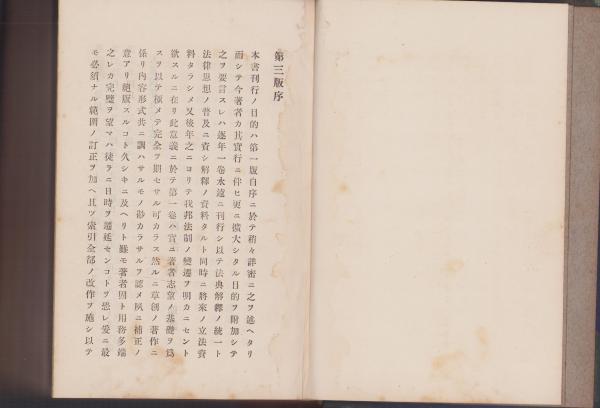 第三版序
本書刊行ノ目的ハ第一版自序ニ於テ稍々詳密ニ之ヲ述ヘタリ
而シテ今著者カ其實行ニ伴ヒ更ニ擴大シタル目的ヲ附加シテ
之ヲ要言スレハ逐年一卷永遠ニ刊行シ以テ法典解釋ノ統一ト
法律思想ノ普及ニ資シ解釋ノ資料タルト同時ニ將來ノ立法資
料タラシメ又後年之ニヨリテ我邦法制ノ變遷ヲ明カニセント
欲スルニ在リ此意義ニ於テ第一卷ハ實ニ著者志望ノ基礎ヲ爲
スヲ以テ極メテ完全ヲ期セサル可カラス然ルニ草創ノ著作ニ
係リ內容形式共ニ調ハサルモノ尠カラサルヲ認メ夙ニ補正ノ
意アリ絕版スルコト久シキニ及ヘリト雖モ著者固ト用務多端
之レカ完璧ヲ望マハ徒ラニ日時ヲ遷延センコトヲ恐レ爰ニ最
モ必須ナル範圍ノ訂正ヲ加ヘ且ツ索引全部ノ改作ヲ施シ以テ